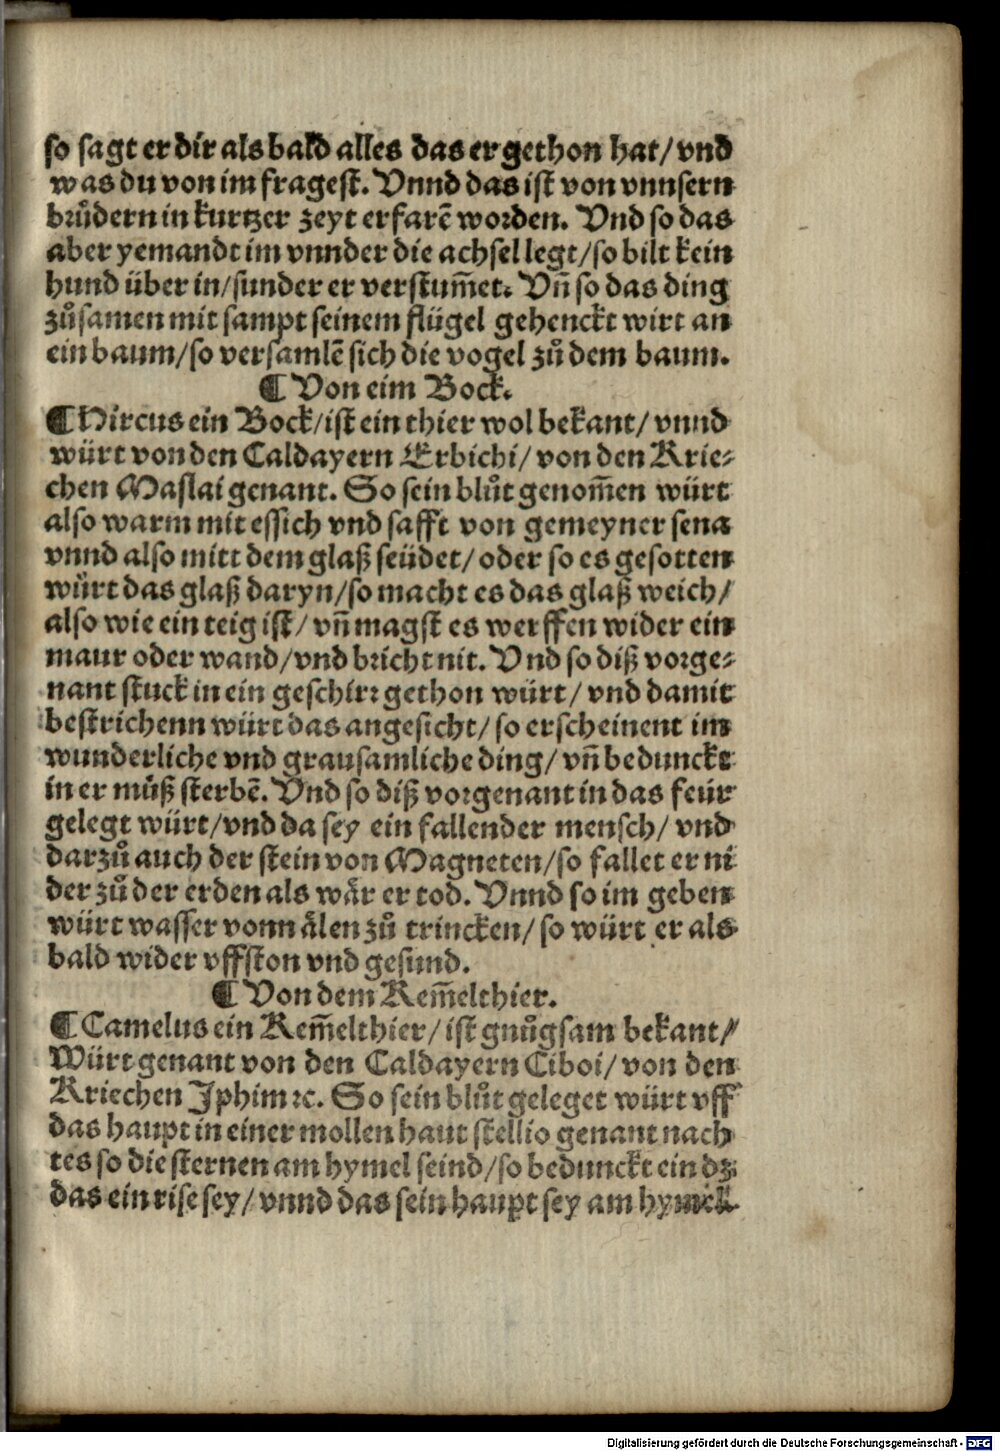 so sagt er dir als bald alles das er gethon hat/ vnd
was du von im fragest. Vnnd das ist von vnnsern
brůdern in kurtzer zeyt erfarē worden. Vnd so das
aber yemandt im vnnder die achsel legt/ so bilt kein
hund über in/ sunder er verstum̄et. Vn̄ so das ding
zůsamen mit sampt seinem flügel gehenckt wirt an
ein baum/ so versamlē sich die vogel zů dem baum.
¶ Von eim Bock.
¶ Hircus ein Bock/ ist ein thier wol bekant/ vnnd
würt von den Caldayern Erbichi/ von den Krie⸗
chen Maslai genant. So sein blůt genom̄en würt
also warm mit essich vnd safft von gemeyner sena
vnnd also mitt dem glaß seüdet/ oder so es gesotten
würt das glaß daryn/ so macht es das glaß weich/
also wie ein teig ist/ vn̄ magst es werffen wider ein
maur oder wand/ vnd bricht nit. Vnd so diß vorge⸗
nant stuck in ein geschirr gethon würt/ vnd damit
bestrichenn würt das angesicht/ so erscheinent im
wunderliche vnd grausamliche ding/ vn̄ bedunckt
in er můß sterbē. Vnd so diß vorgenant in das feür
gelegt würt/ vnd da sey ein fallender mensch/ vnd
darzů auch der stein von Magneten/ so fallet er ni
der zů der erden als wår er tod. Vnnd so im geben
würt wasser vonn ålen zů trincken/ so würt er als
bald wider vffston vnd gesund.
¶ Von dem Kem̄elthier.
¶ Camelus ein Kem̄elthier/ ist gnůgsam bekant/
Würt genant von den Caldayern Ciboi/ von den
Kriechen Iphim ꝛc. So sein blůt geleget würt vff
das haupt in einer mollen haut stellio genant nach
tes so die sternen am hymel seind/ so bedunckt ein dz
das ein rise sey/ vnnd das sein haupt sey am hymel.
Digitalisierung gefördert durch die Deutsche Forschungsgemeinschaft - DFG